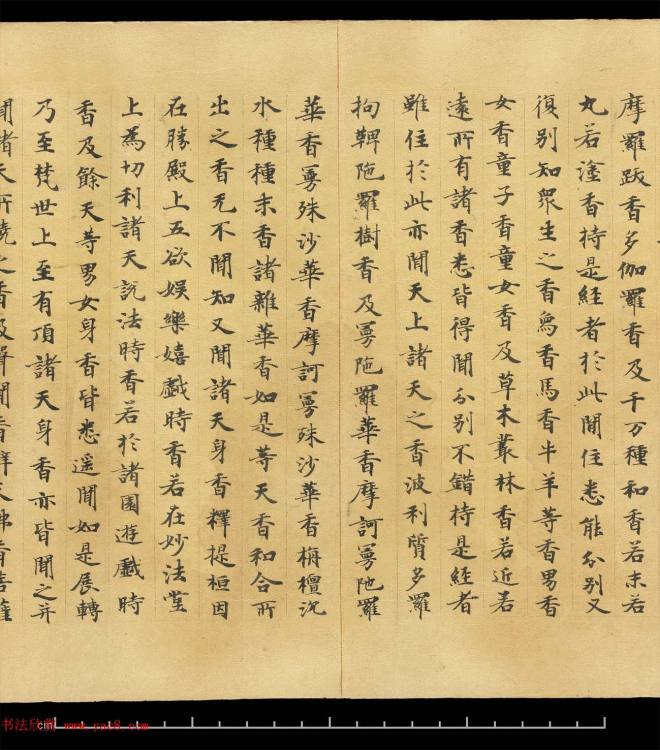 摩羅跋香多伽羅香及千万種和香若末若
丸若塗香持是經者於此間住悉能分別又
復別知衆生之香象香馬香牛羊等香男香
女香童子香童女香及草木叢林香若近若
遠所有諸香悉皆得聞分別不錯持是經者
雖住於此亦聞天上諸天之香波利質多羅
拘鞞陁羅樹香及曼陁羅華香摩訶曼陁羅
華香曼殊沙華香摩訶曼殊沙華香栴檀沉
水種種末香諸雜華香如是等天香和合所
出之香无不聞知又聞諸天身香釋提桓因
在勝殿上五欲娛樂嬉戲時香若在妙法堂
上為忉利諸天說法時香若於諸園遊戲時
香及餘天等男女身香皆悉遙聞如是展轉
乃至梵世上至有頂諸天身香亦皆聞之并
聞諸天所燒之香及聲聞香辟支佛香菩薩
cm
书法欣赏 www.yac8.com